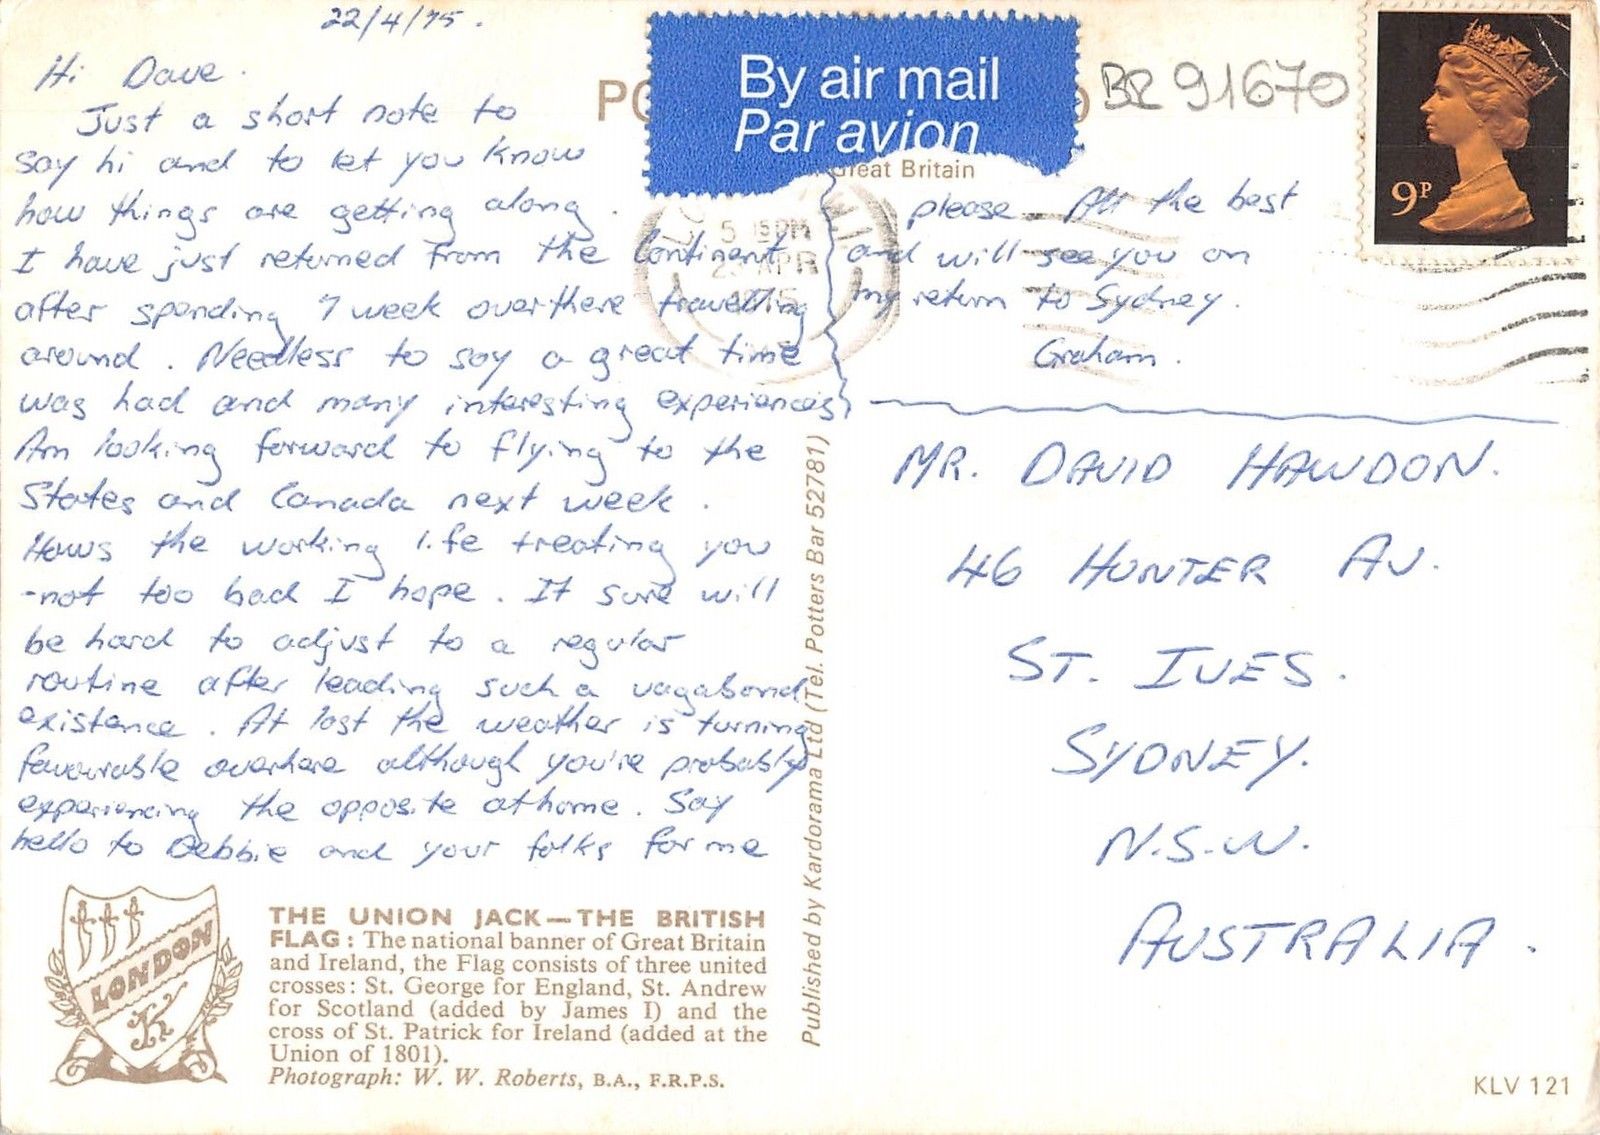 22/4/75.
Hi Dave.
Just a short note to
say hi and to let you know
how things are getting along.
I have just returned from the Continent
after spending 7 week overthere travelling
around. Needless to say a great time
was had and many interesting experiences,
Am looking forward to flying to the
States and Canada next week.
Hows the working life treating you
-not too bad I hope. It sure will
be hard to adjust to a regular
routine after leading such a vagabond
existence. At last the weather is turning
favourable overhere although you're probably
experiencing the opposite at home. Say
hello to Debbie and your folks for me
please. All the best
and will see you on
my return to Sydney.
Graham.
By air mail
Par avion
Great Britain
BR 91670
9P
5 15PM
APR
MR. DAVID HAWDON.
46 HUNTER AV.
ST. IVES.
SYDNEY.
N.S.W.
AUSTRALIA.
Published by Kardorama Ltd (Tel. Potters Bar 52781)
LONDON
K
THE UNION JACK—THE BRITISH
FLAG: The national banner of Great Britain
and Ireland, the Flag consists of three united
crosses: St. George for England, St. Andrew
for Scotland (added by James I) and the
cross of St. Patrick for Ireland (added at the
Union of 1801).
Photograph: W. W. Roberts, B.A., F.R.P.S.
KLV 121